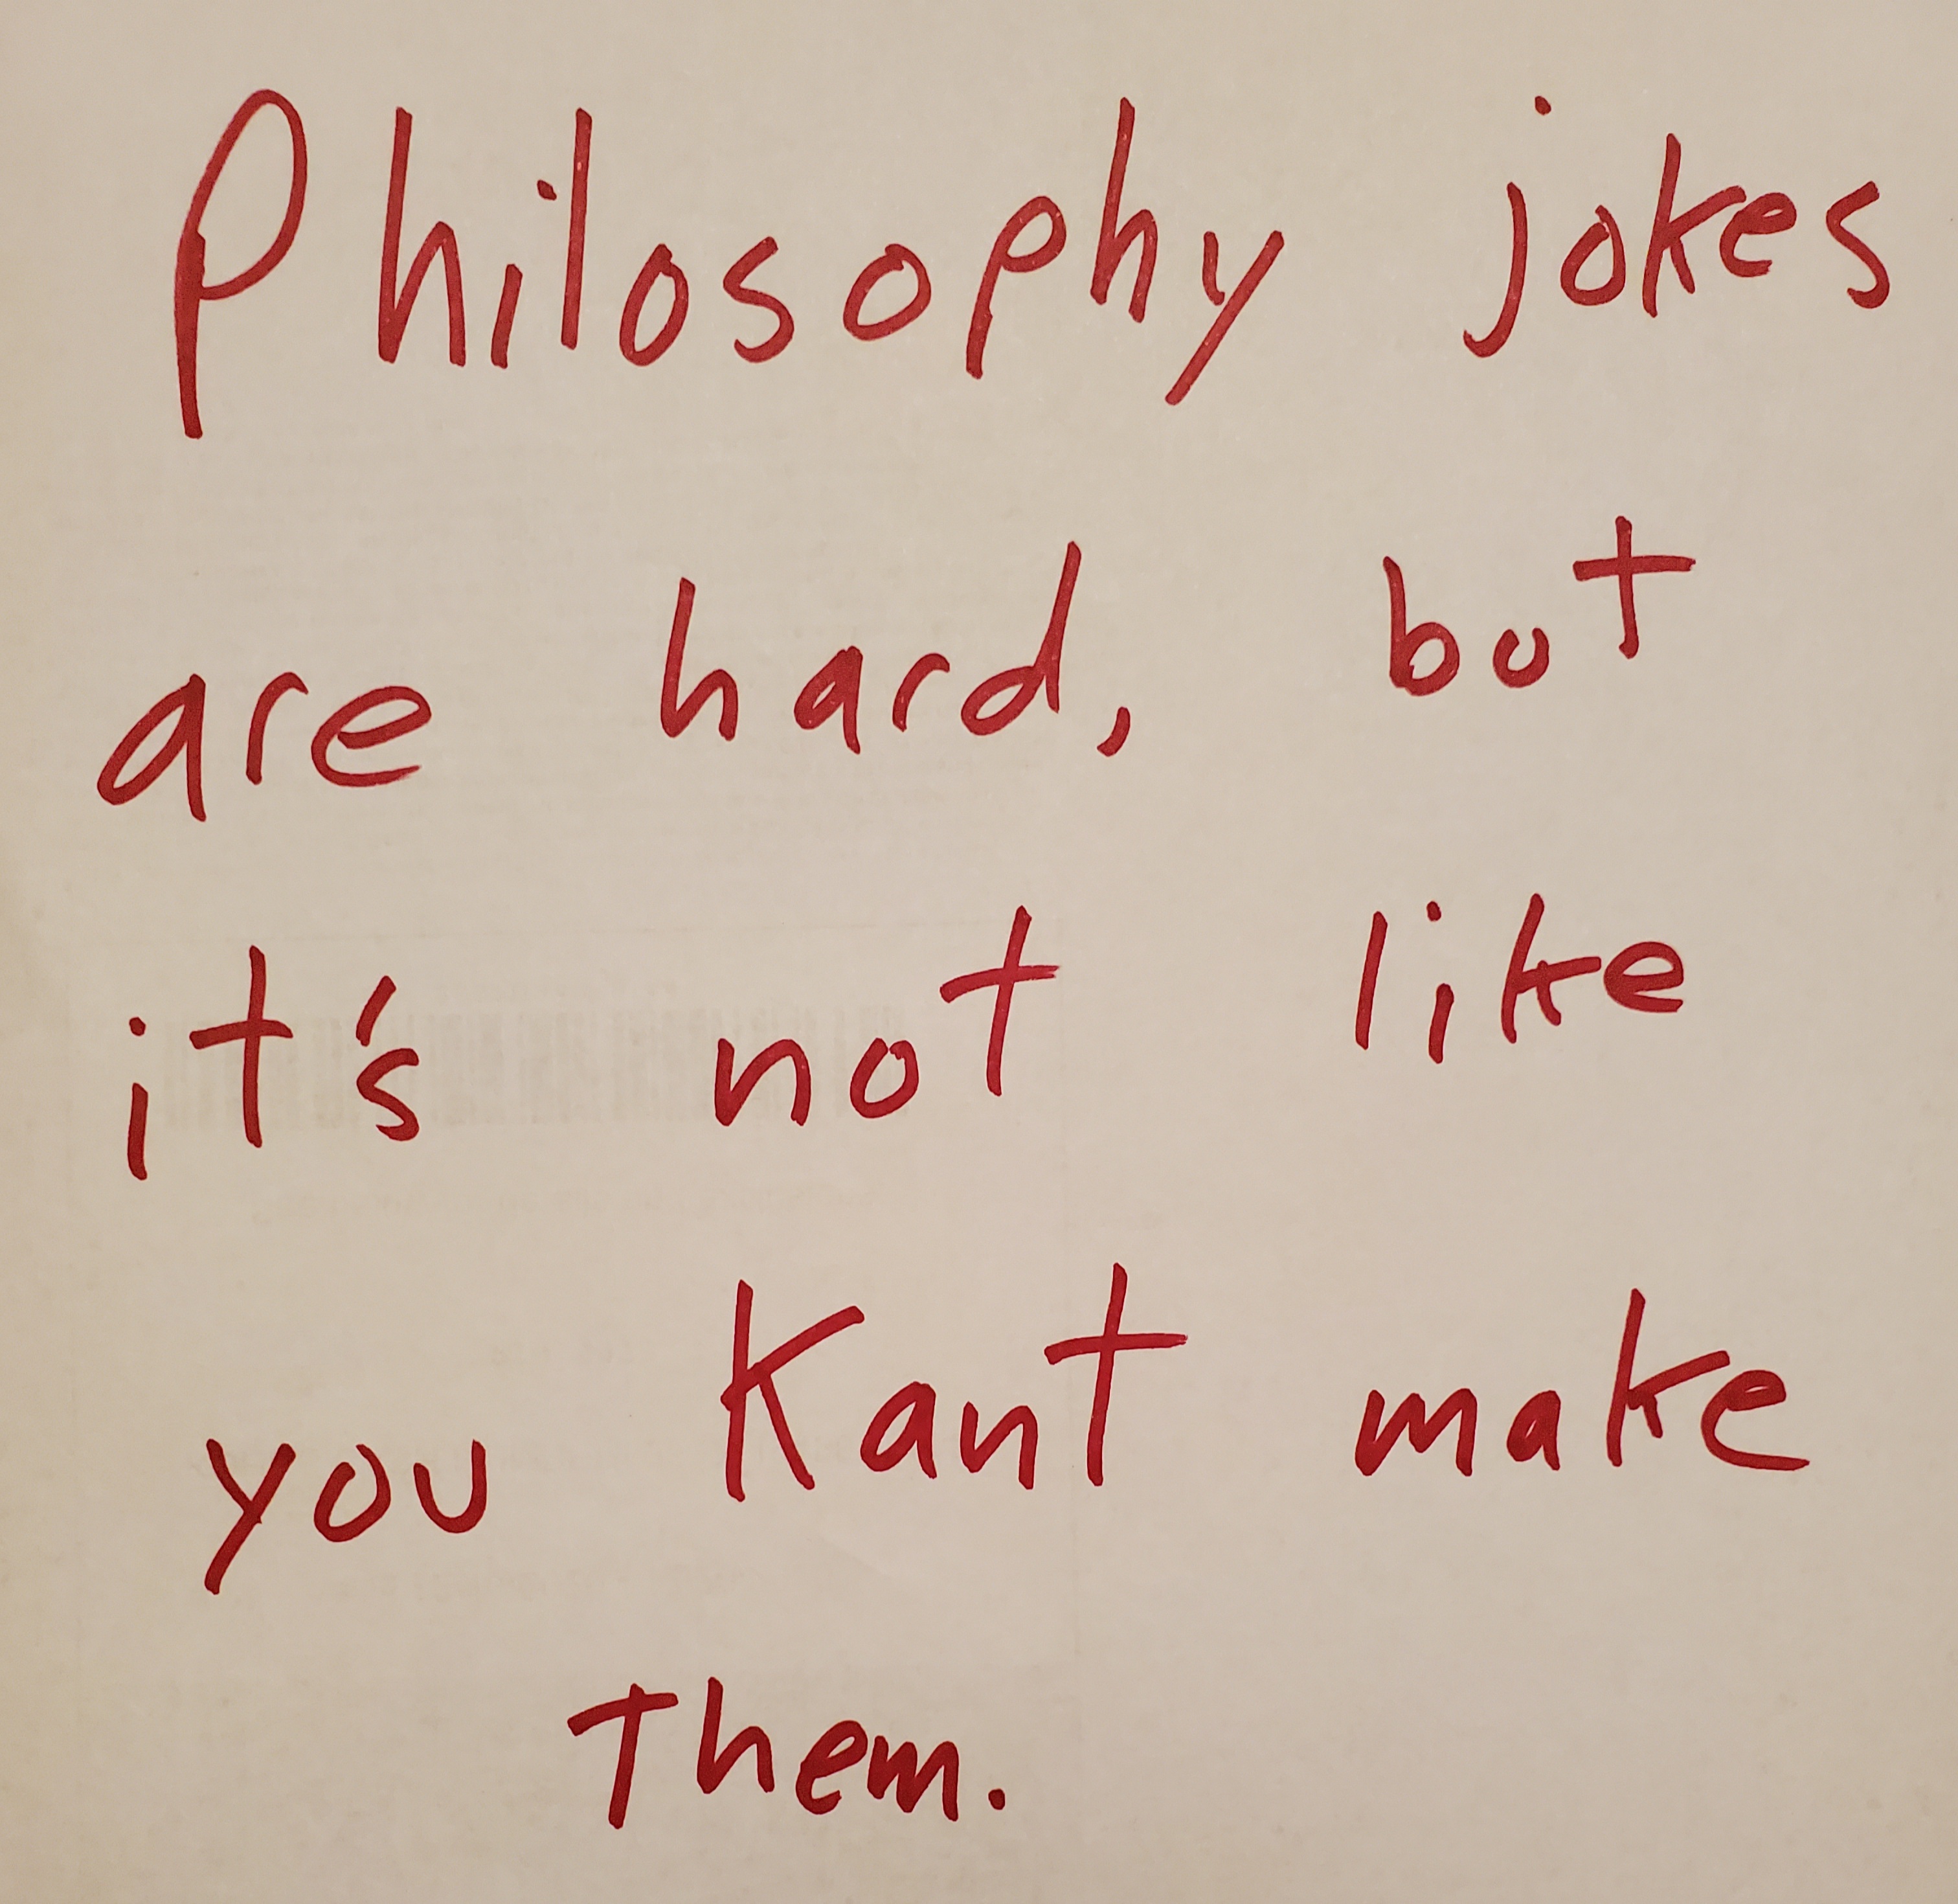 Philosophy jokes
are hard, but
it's not like
you Kant make
them.